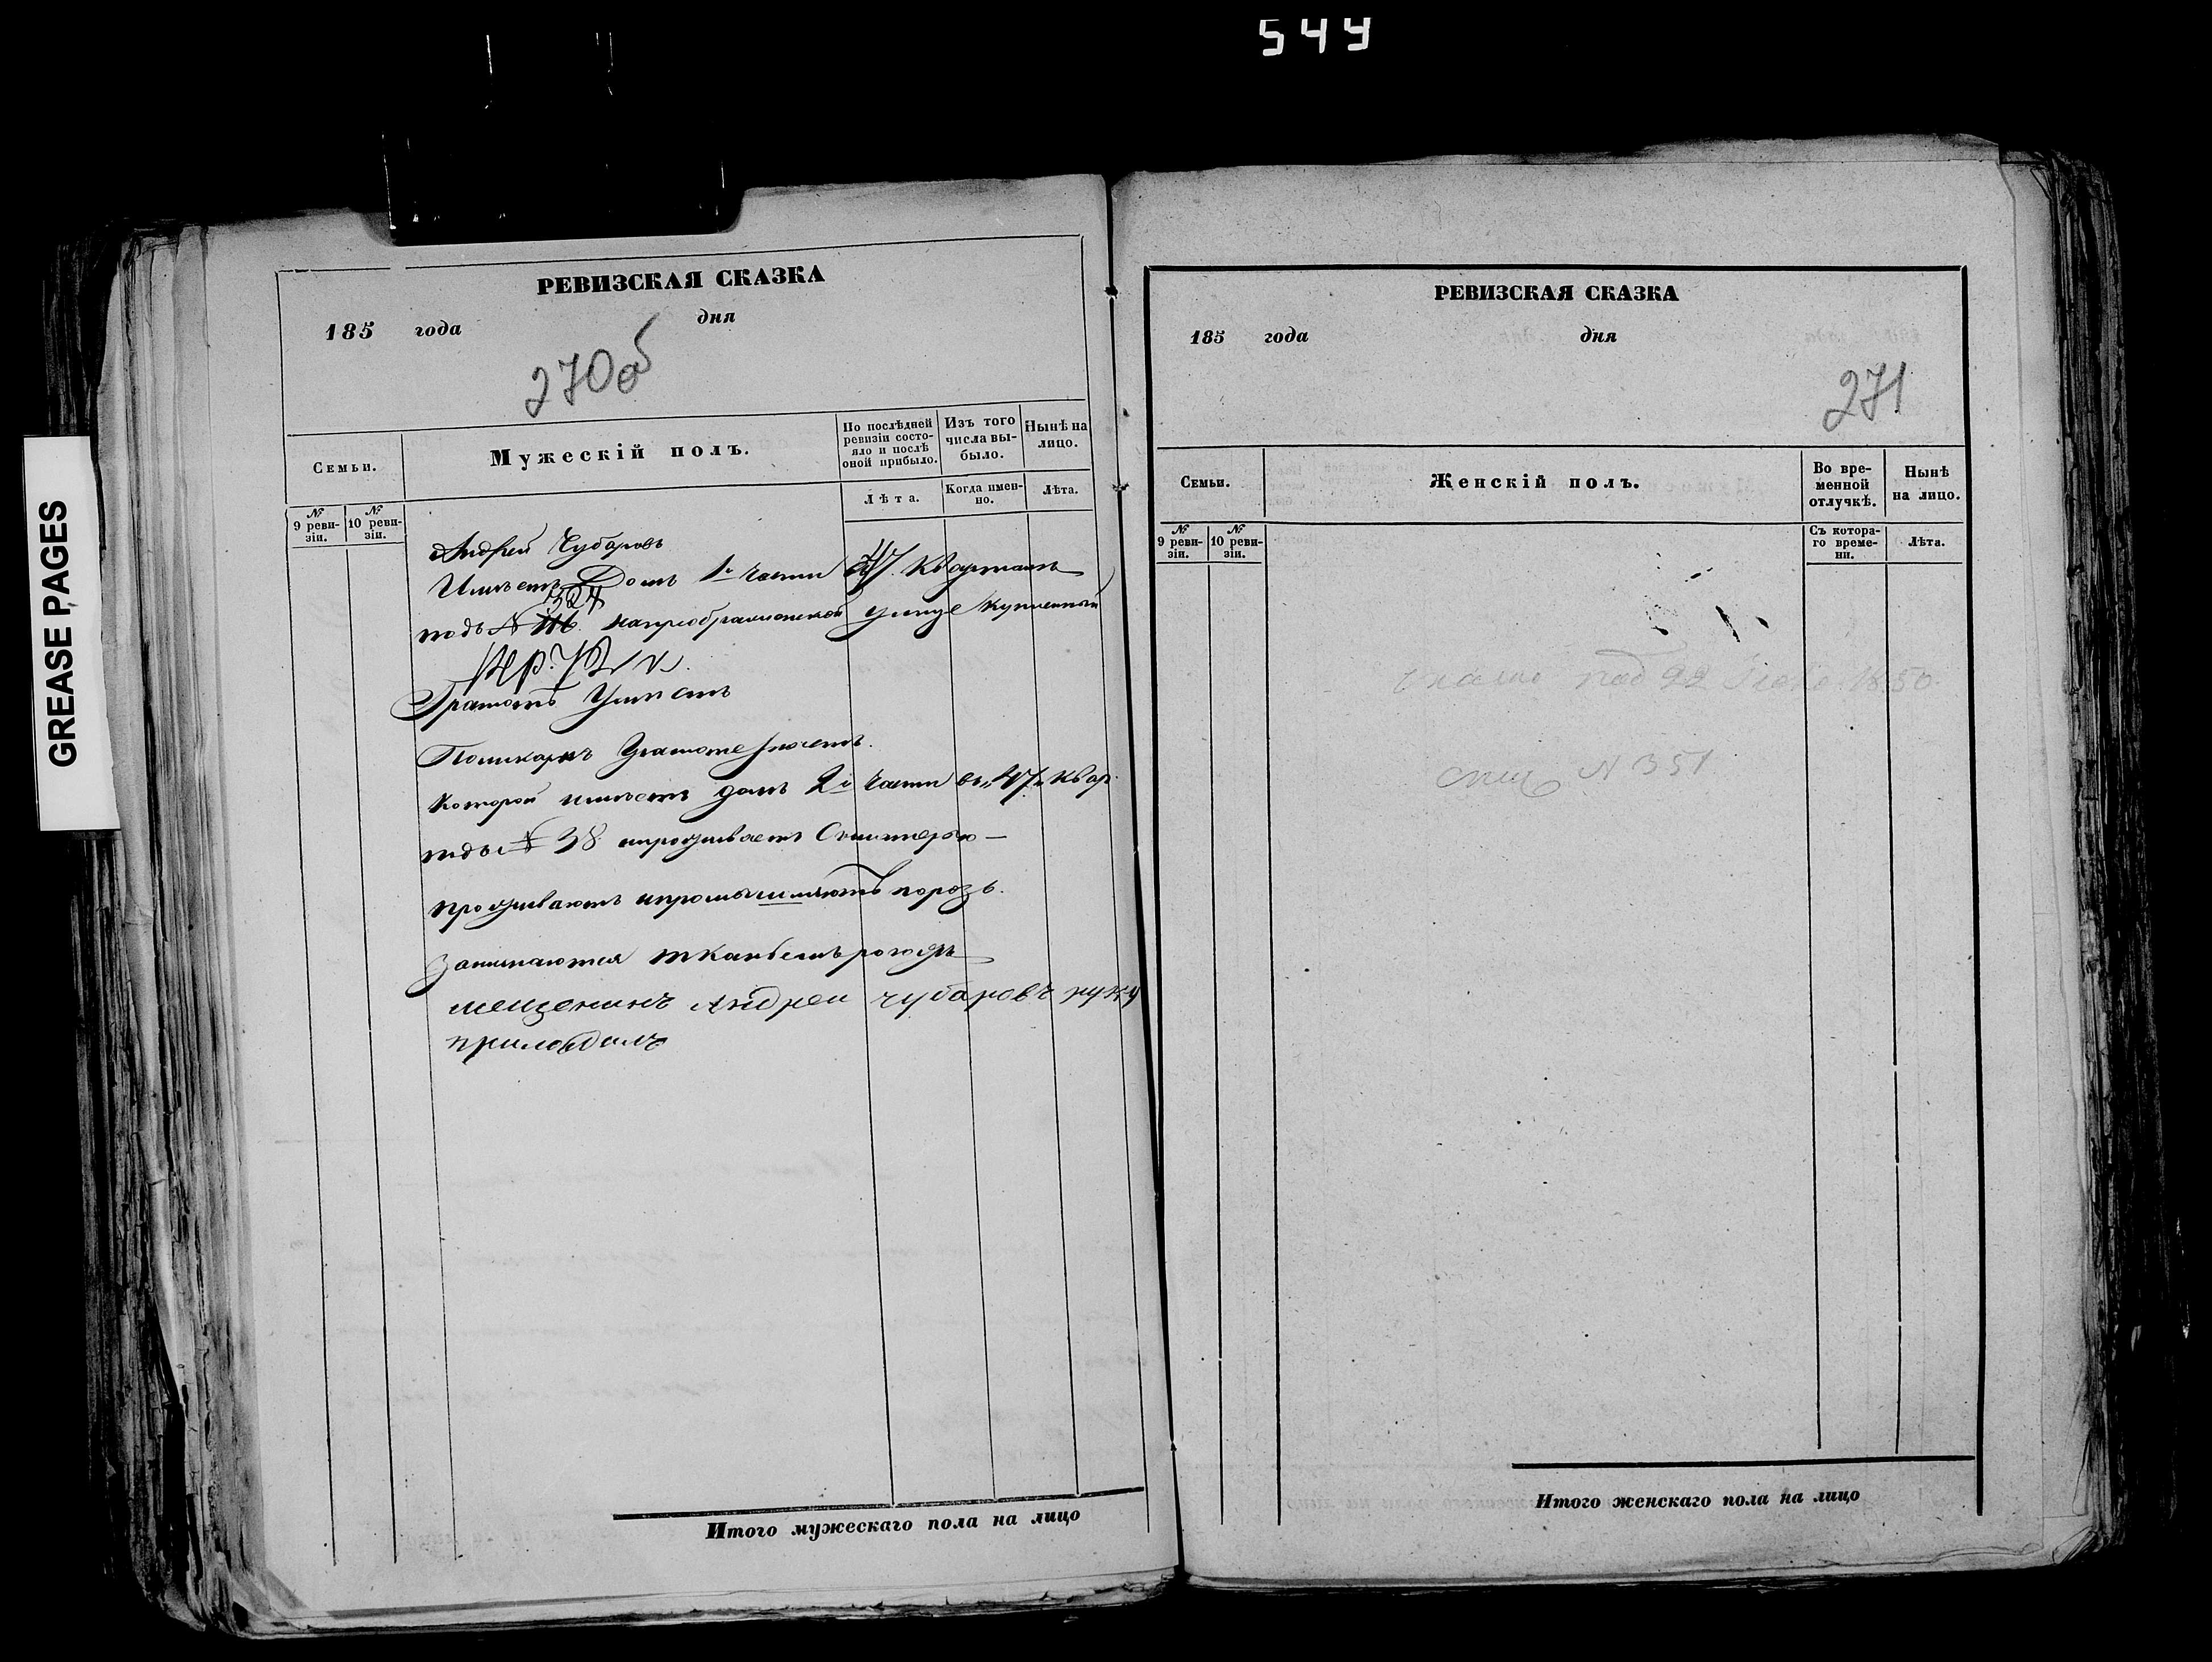 549
GREASE PAGES
РЕВИЗСКАЯ СКАЗКА
185 года дня
270об
Семьи.
Мужескій полъ.
По послѣдней ревизіи состояло и послѣ оной прибыло.
Изъ того числа выбыло.
Нынѣ на лицо.
№ 9 ревизіи.
№ 10 ревизіи.
Лѣта.
Когда именно.
Лѣта.
Андрей Чубаровъ
Имѣетъ Домъ 1й части кварталъ
524
подъ № улице купленный
Грамотѣ Умѣетъ
Поликарпъ Грамоте
Которой имѣетъ домъ 2й части въ 47 квар.
подъ № 38 ипроживаетъ
проживаютъ ипромышляютъ порозь.
Занимаются
мещенинъ Андреи чубаровъ руку
приложилъ
Итого мужескаго пола на лицо
РЕВИЗСКАЯ СКАЗКА
185 года дня
271
Семьи.
Женскій полъ.
Во временной отлучкѣ.
Нынѣ на лицо.
№ 9 ревизіи.
№ 10 ревизіи.
Съ котораго времени.
Лѣта.
под 22 1850.
N 351
Итого женскаго пола на лицо